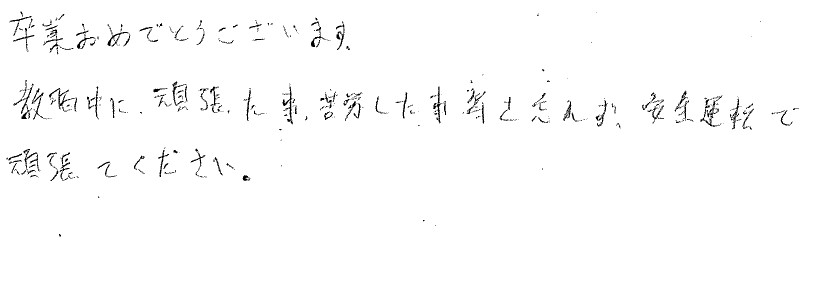 卒業おめでとうございます。
教習中に、頑張った事、苦労した事等を忘れず、安全運転で
頑張ってください。